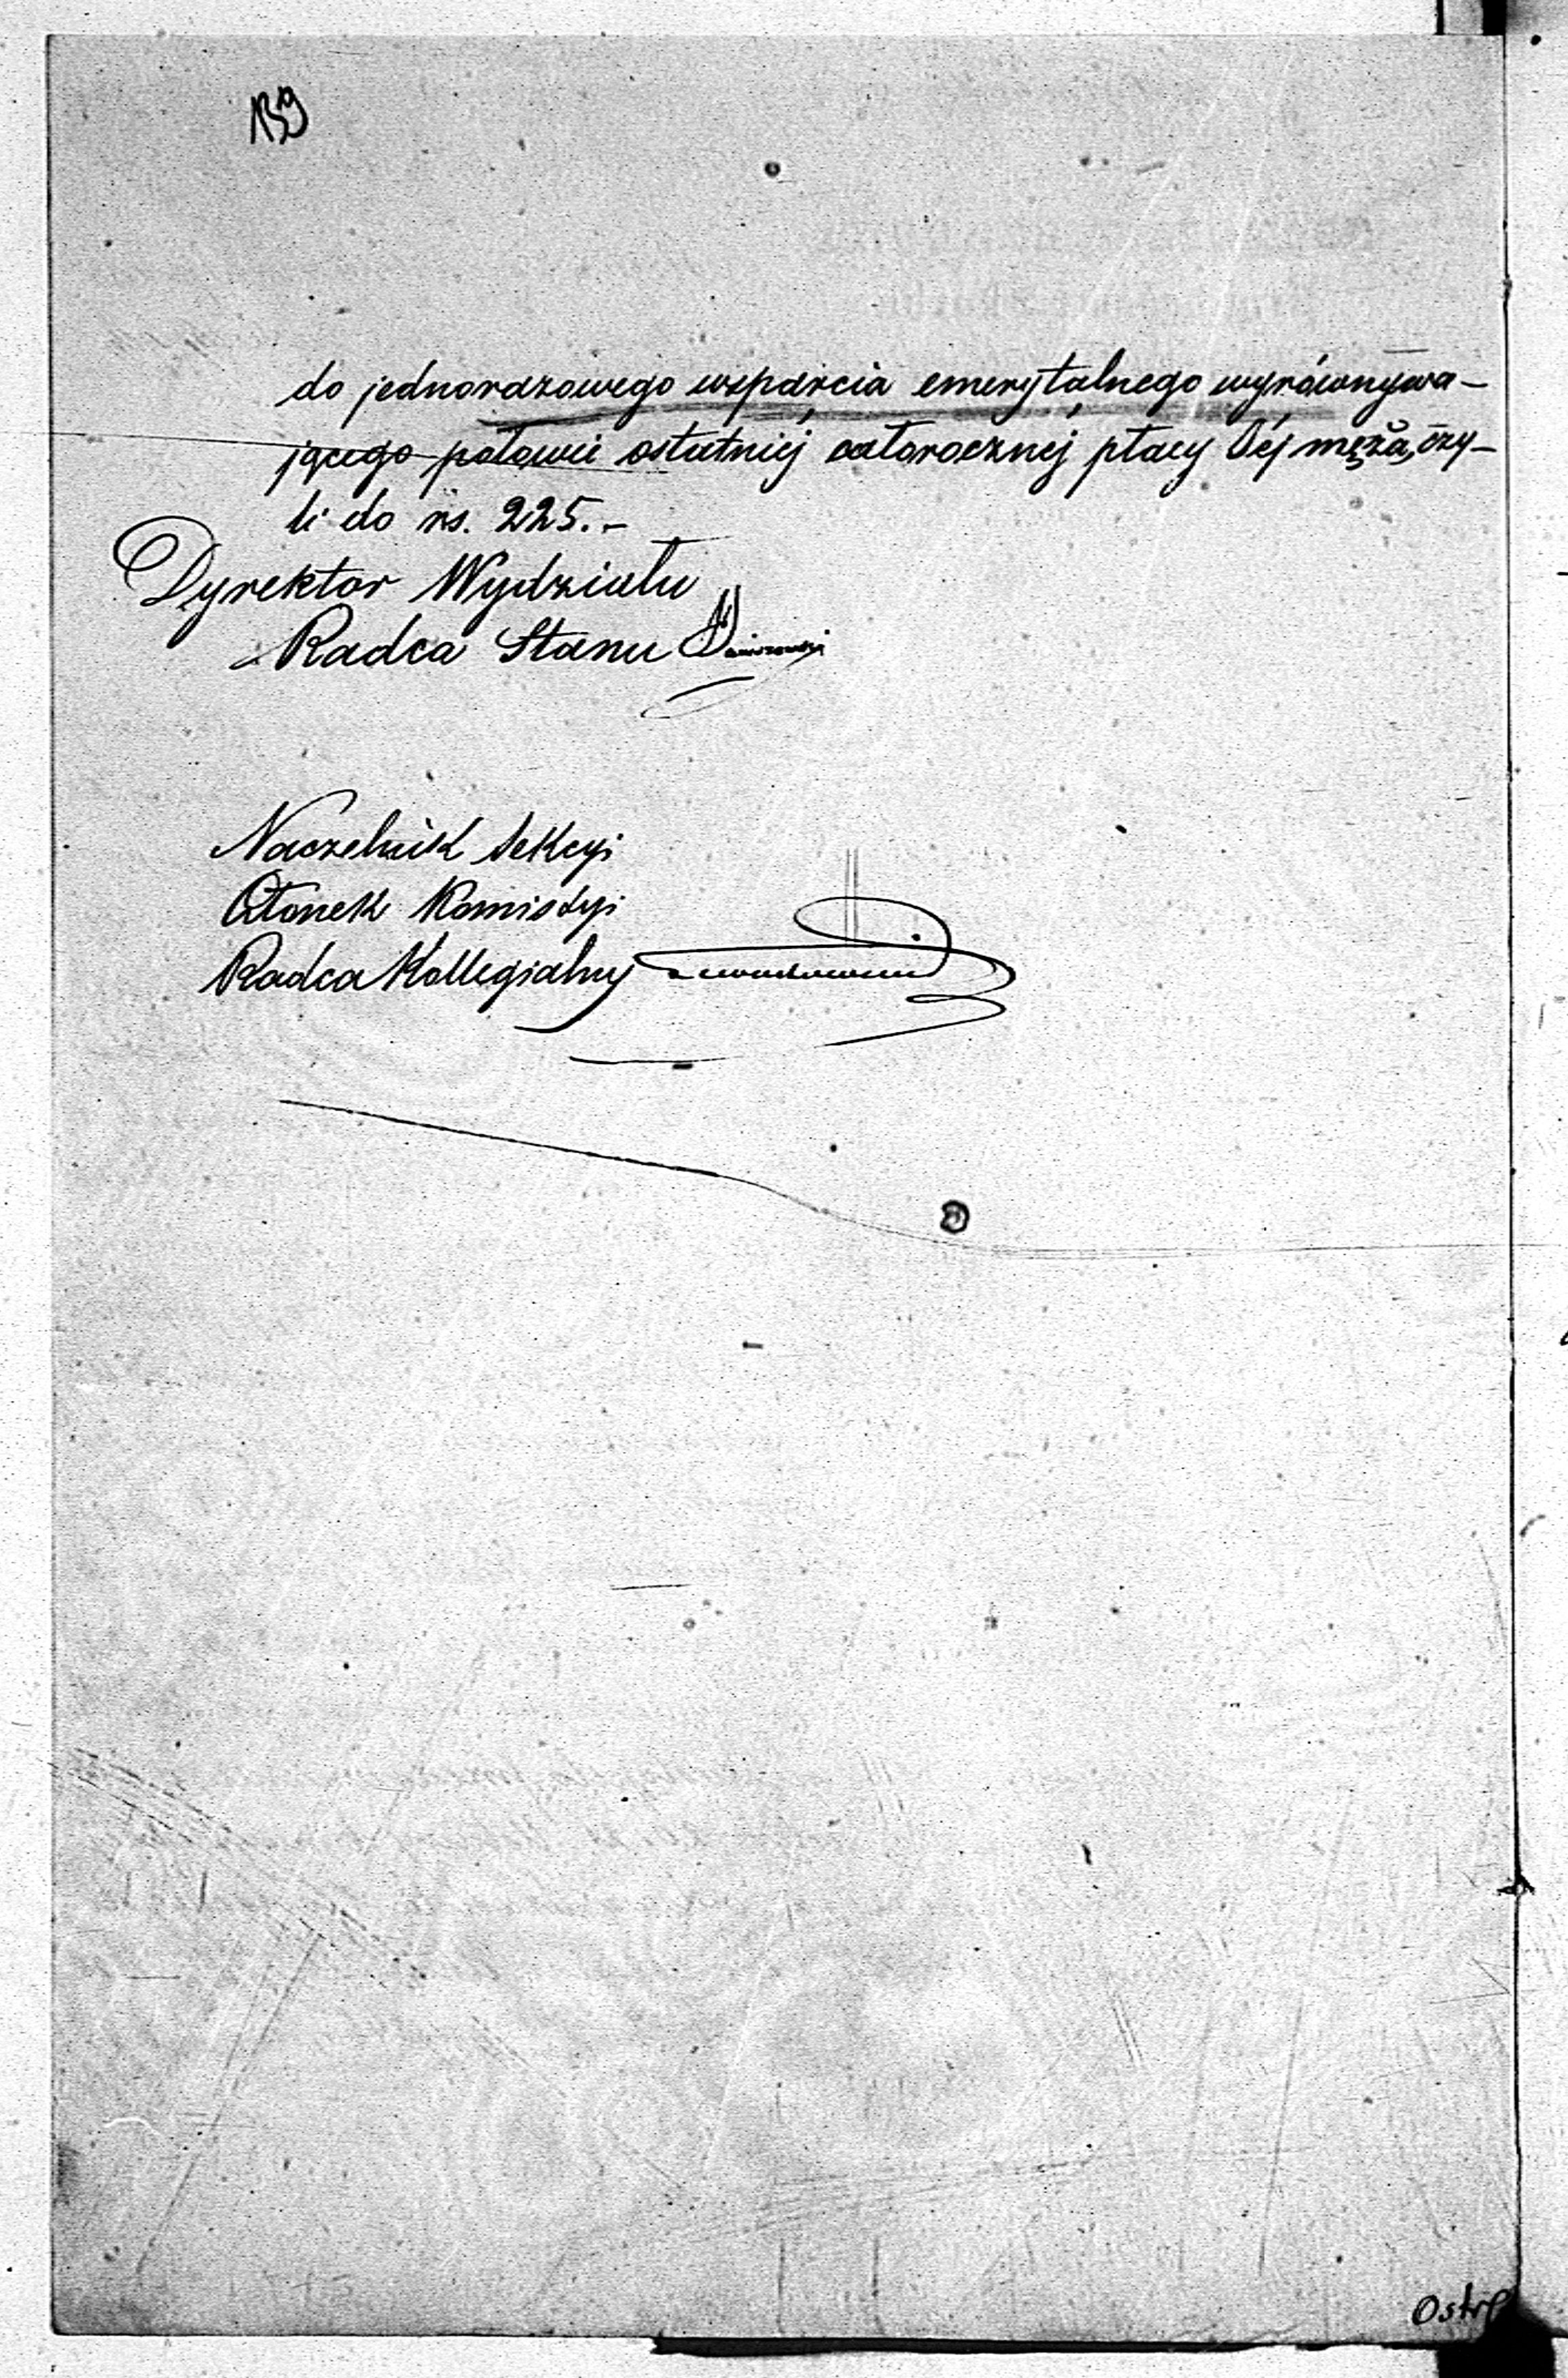 139
do jednorazowego wsparcia emerytalnego wyrównywa-
jącego połowie ostatniej całorocznej płacy Jéj męża, czy-
li do rs. 225.-
Dyrektor Wydziału
Radca Stanu
Naczelnik Sekcyi
Członek Komissyi
Radca Kollegialny